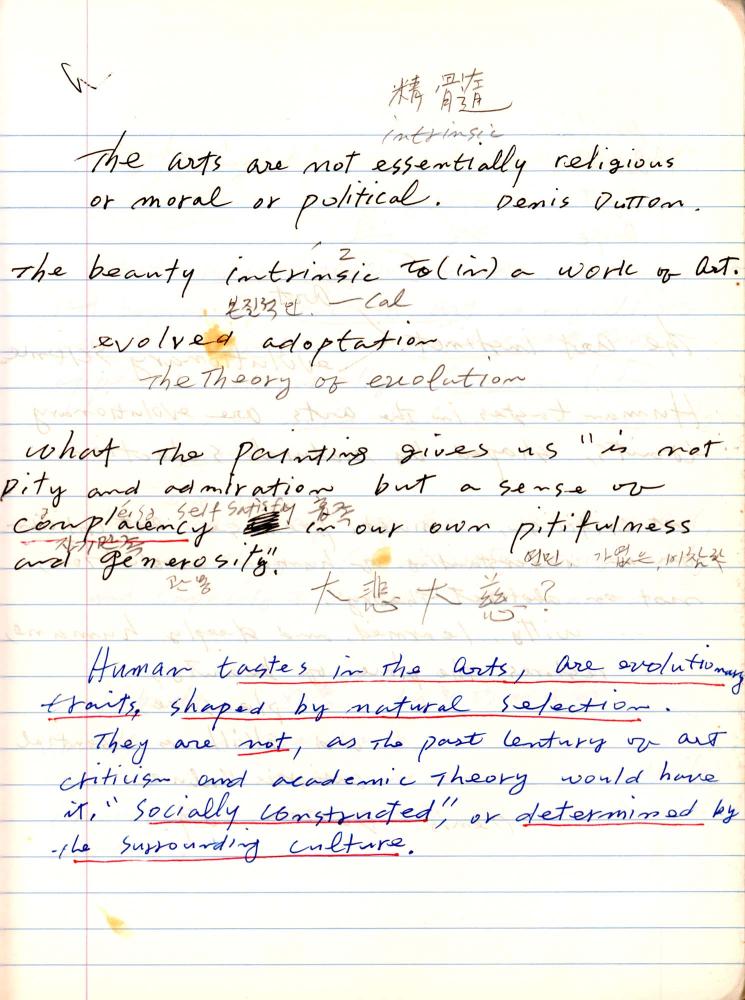 精髓
intrinsic
The arts are not essentially religious
or moral or political. Denis Dutton.
2
The beauty intrinsic to (in) a work of Art.
본질적인. -cal
evolved adoptation
The Theory of evolution
What the painting gives us "is not
pity and admiration but a sense of
self satisfy
complaiency in our own pitifulness
자기만족 연민, 가엾은, 비참한
and generosity".
관용
大悲大慈?
Human tastes in the arts, are evolutionary
traits, shaped by natural selection.
They are not, as the past century of art
criticism and academic Theory would have
it, "Socially constructed", or determined by
the surrounding culture.